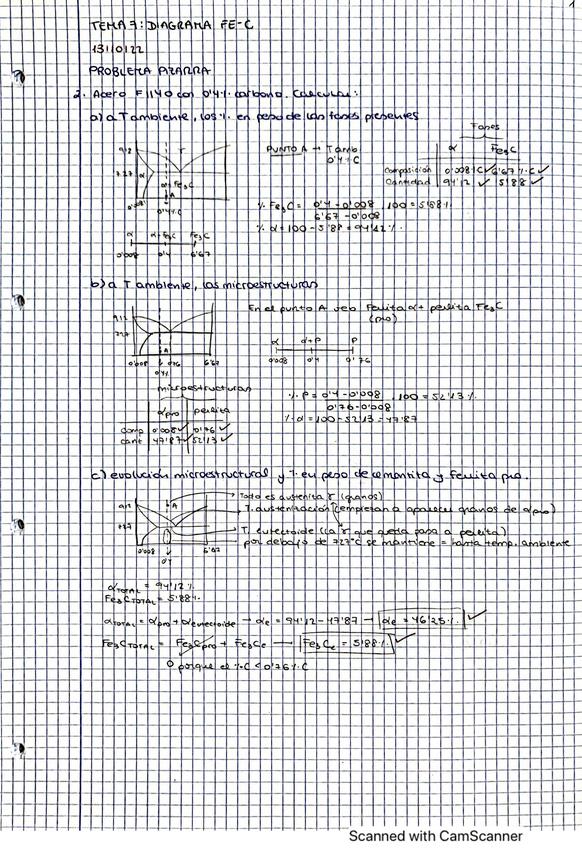 1
TEMA 7: DIAGRAMA FE-C
13/10/22
PROBLEMA PIZARRA
2. Acero F1140 con 0'4% carbono. Calcular:
a) a T ambiente, los % en peso de las fases presentes
Fases
α Fe₃C
Composición 0'008%C ✓ 6'67%C ✓
Cantidad 94'12 ✓ 5'88 ✓
912
727
α γ
α+Fe₃C
A
0'008 0'4%C
PUNTO A → T amb
0'4%C
% Fe₃C = (0'4 - 0'008) / (6'67 - 0'008) . 100 = 5'88%
% α = 100 - 5'88 = 94'12%
α α+Fe₃C Fe₃C
0'008 0'4 6'67
b) a T ambiente, las microestructuras
En el punto A veo Ferrita α + perlita Fe₃C
(pro)
912
727
A
0'008 0'76 6'67
0'4
α α+P P
0'008 0'4 0'76
microestructuras
αpro perlita
comp 0'008 ✓ 0'76 ✓
cant 47'87 ✓ 52'13 ✓
% P = (0'4 - 0'008) / (0'76 - 0'008) . 100 = 52'13%
% α = 100 - 52'13 = 47'87
c) evolución microestructural y % en peso de cementita y ferrita pro.
912
727
A
0'008 6'67
0'4
Todo es austenita γ (granos)
T. austenización (empiezan a aparecer granos de α pro)
T. eutectoide (la γ que queda pasa a perlita)
por debajo de 727°C se mantiene = hasta temp. ambiente
α TOTAL = 94'12%
Fe₃C TOTAL = 5'88%
α TOTAL = α pro + α eutectoide → αe = 94'12 - 47'87 → αe = 46'25% ✓
Fe₃C TOTAL = Fe₃C pro + Fe₃Ce → Fe₃Ce = 5'88% ✓
0 porque el %C < 0'76%C
Scanned with CamScanner